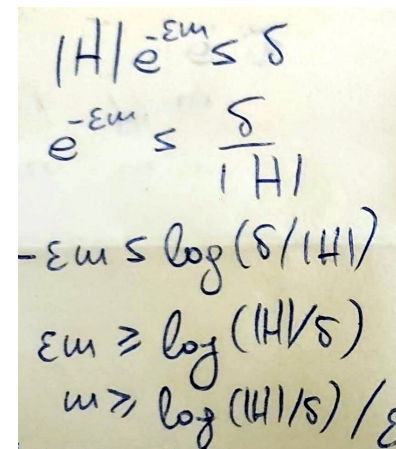 |H|e^{-εm} ≤ δ
e^{-εm} ≤ δ/|H|
-εm ≤ log(δ/|H|)
εm ≥ log(|H|/δ)
m ≥ log(|H|/δ)/ε